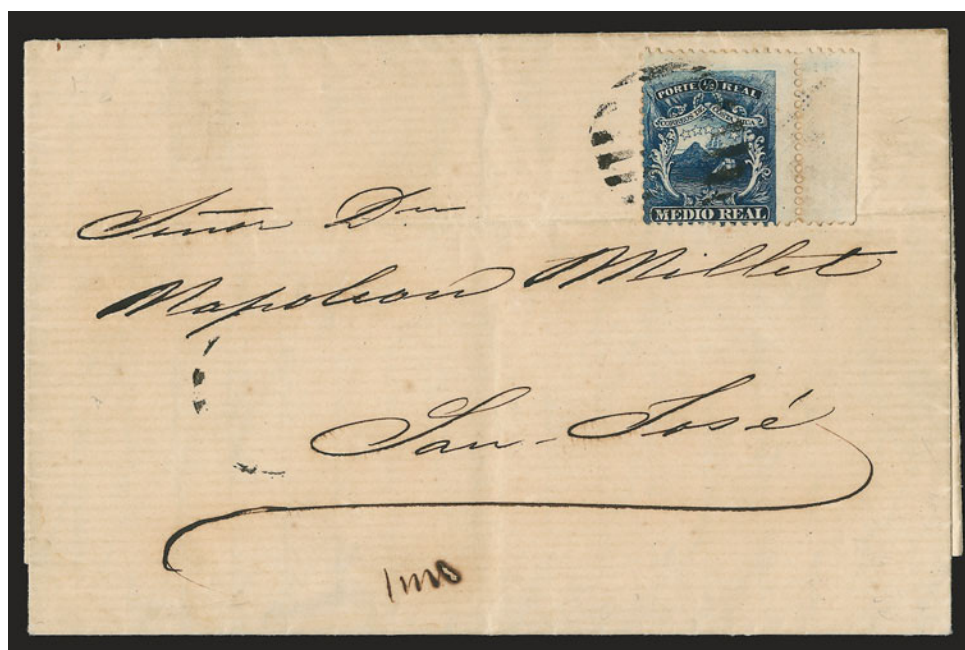 PORTE ½ REAL
CORREOS DE COSTA RICA
MEDIO REAL
Señor Dn
Napoleon Millet
San-José